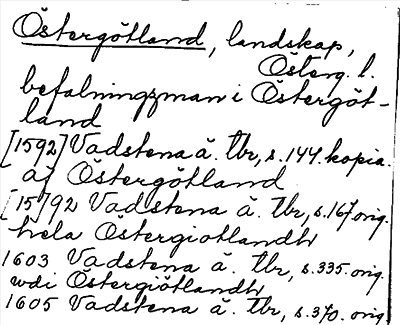 Östergötland, landskap,
Österg. l.
befalningzman i Östergöt-
land
[1592] Vadstena ä. Tbr, s. 144. kopia.
aj Östergötland
[15]92 Vadstena ä. Tbr, s. 167 orig.
hela Östergiotlandh
1603 Vadstena ä. Tbr, s. 335. orig.
wdi Östergiötlandh
1605 Vadstena ä. Tbr, s. 370. orig